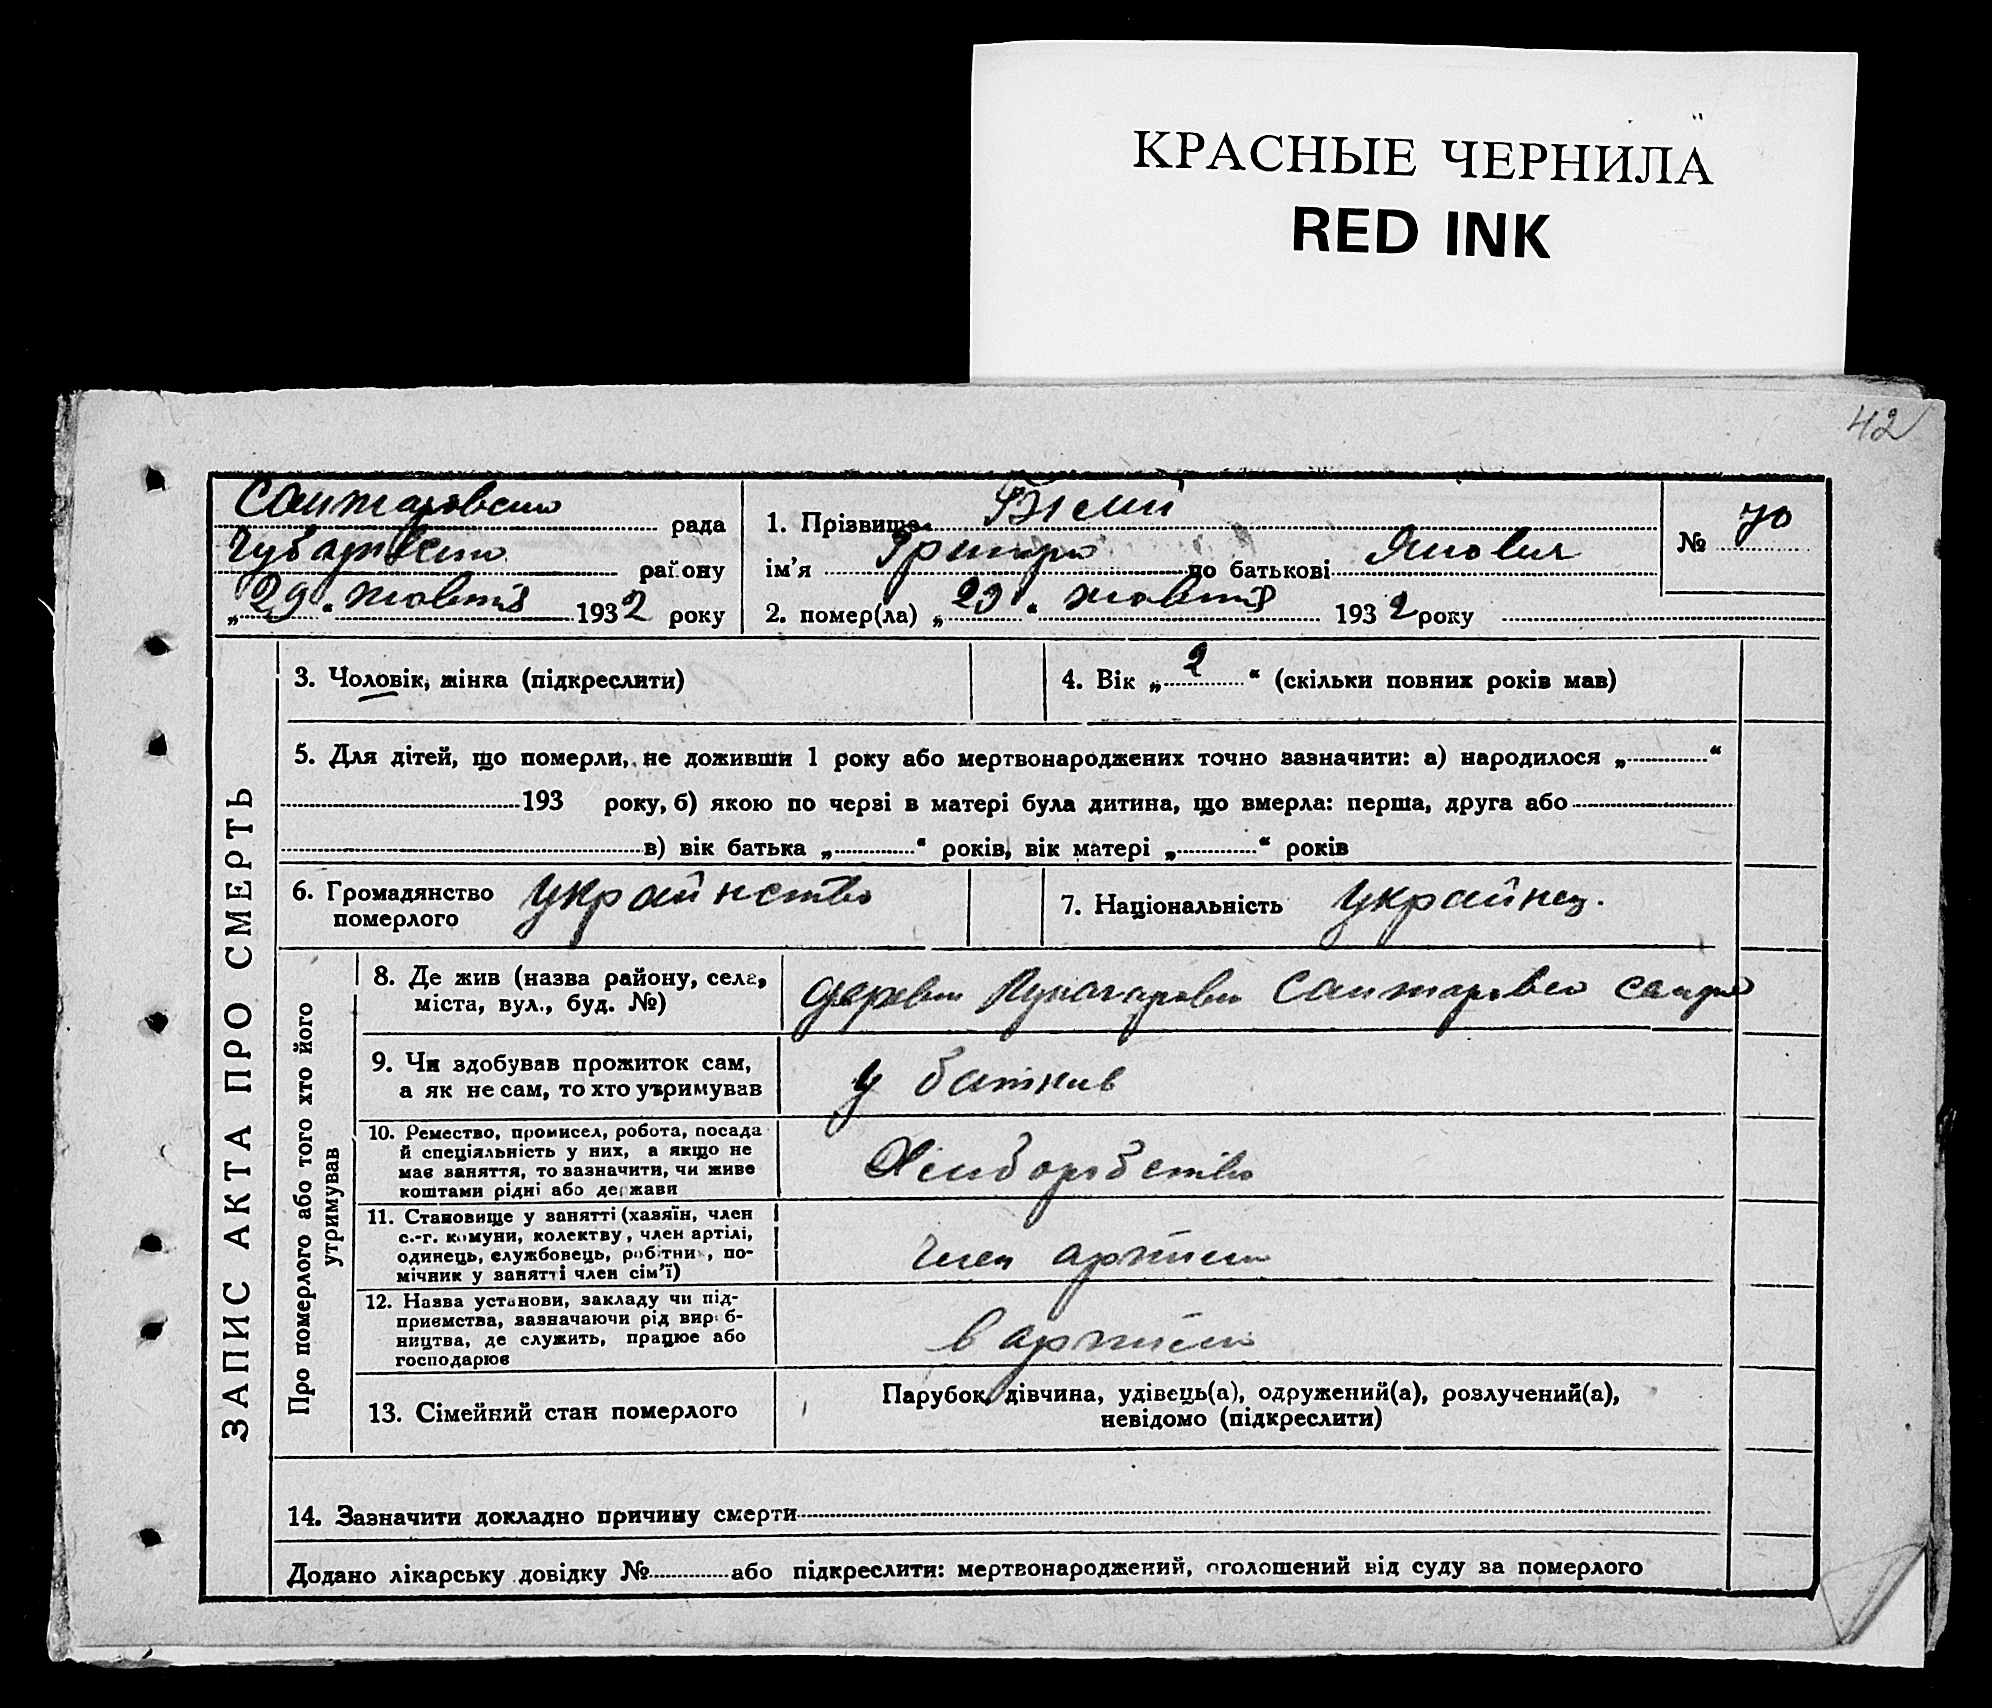 КРАСНЫЕ ЧЕРНИЛА
RED INK
42
рада
району
„29“ жовтня 1932 року
1. Прізвище Білий
ім'я Григорій по батькові
2. помер(ла) „29“ жовтня 1932 року
№ 70
ЗАПИС АКТА ПРО СМЕРТЬ
3. Чоловік, жінка (підкреслити)
4. Вік „2“ (скільки повних років мав)
5. Для дітей, що померли, не доживши 1 року або мертвонароджених точно зазначити: а) народилося „ “
193 року, б) якою по черзі в матері була дитина, що вмерла: перша, друга або
в) вік батька „ “ років, вік матері „ “ років
6. Громадянство
померлого
украйнство
7. Національність украйнец.
Про померлого або того хто його
утримував
8. Де жив (назва району, села,
міста, вул., буд. №)
9. Чи здобував прожиток сам,
а як не сам, то хто утримував
у батькив
10. Ремество, промисел, робота, посада
й спеціяльність у них, а якщо не
має заняття, то зазначити, чи живе
коштами рідні або держави
Хлиборобство
11. Становище у занятті (хазяїн, член
с.-г. комуни, колективу, член артілі,
одинець, службовець, робітник, по-
мічник у занятті член сім'ї)
член артили
12. Назва установи, закладу чи під-
приємства, зазначаючи рід вироб-
ництва, де служить, працює або
господарює
в артили
13. Сімейний стан померлого
Парубок, дівчина, удівець(а), одружений(а), розлучений(а),
невідомо (підкреслити)
14. Зазначити докладно причину смерти
Додано лікарську довідку № або підкреслити: мертвонароджений, оголошений від суду за померлого